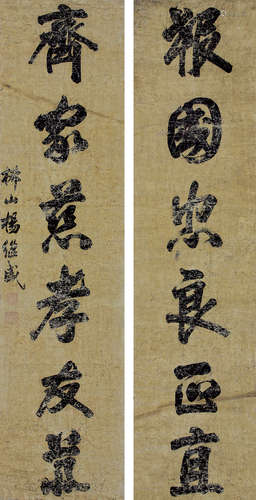 報國忠良正直
齊家慈孝友恭
椒山楊繼盛